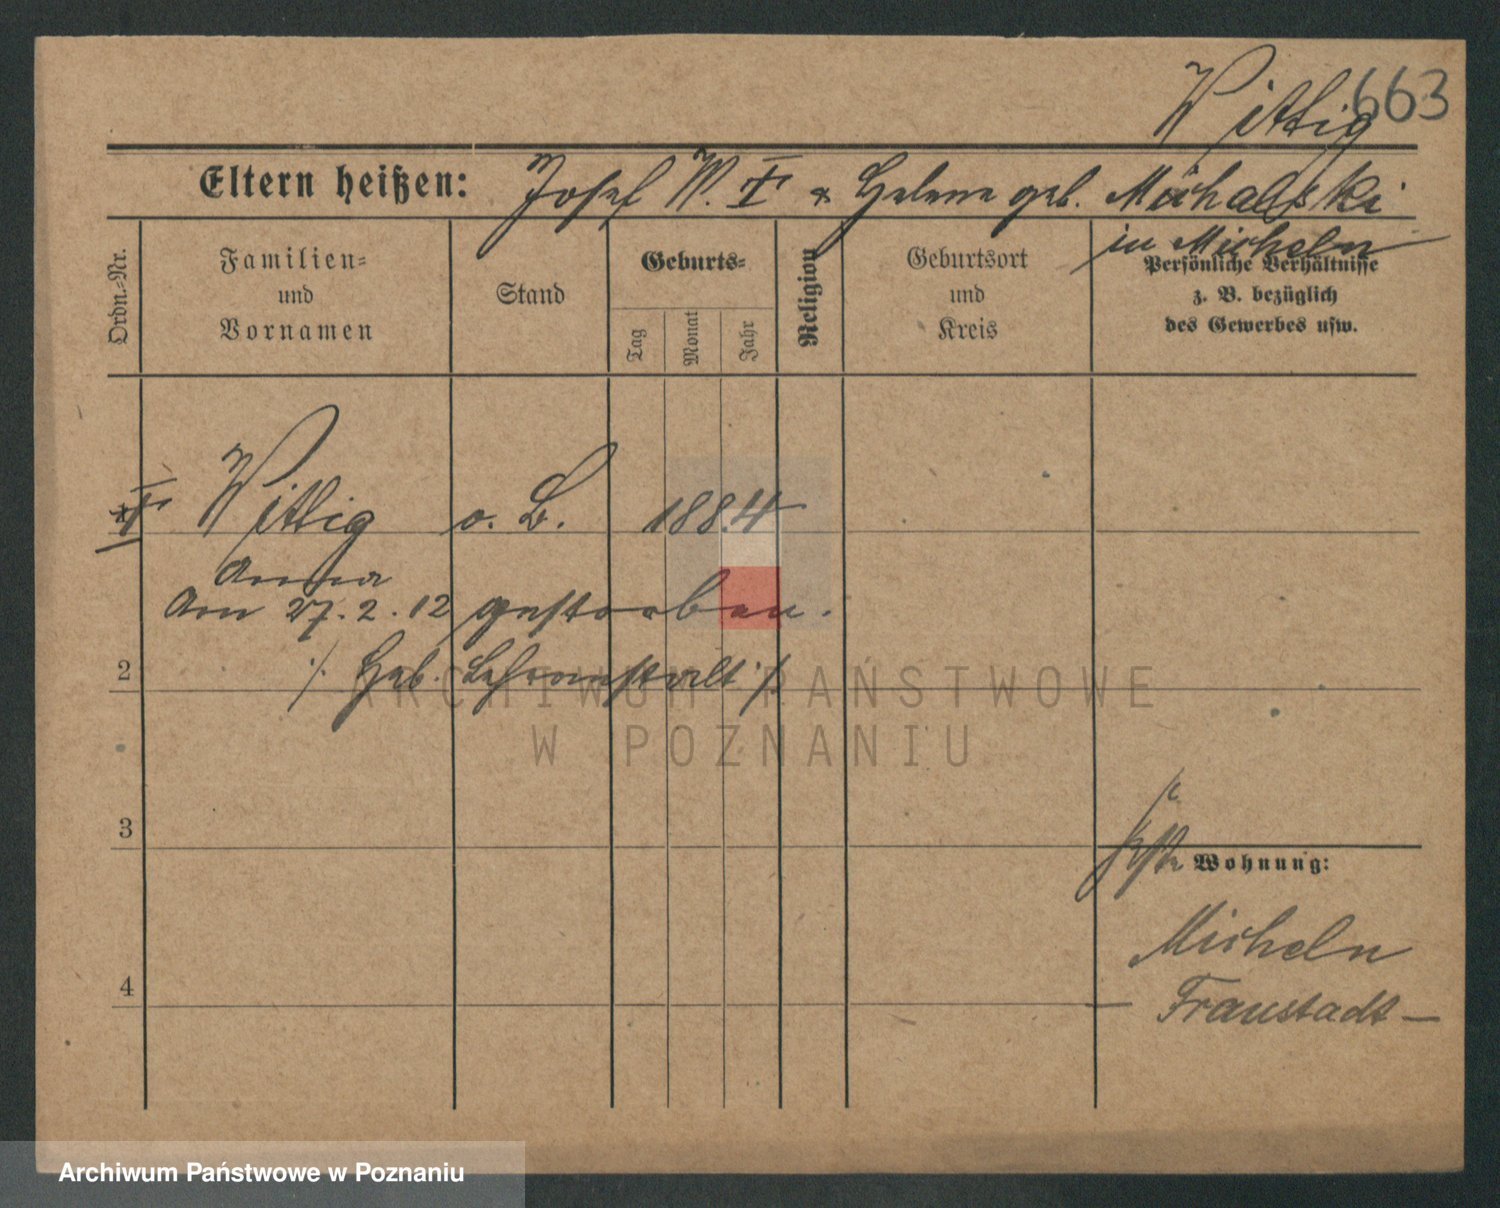 663
Wittig
Eltern heißen: Josef W. † & Helene geb. Michalski
in Micheln
Ordn.-Nr.
Familien-
und
Vornamen
Stand
Geburts-
Tag
Monat
Jahr
Religion
Geburtsort
und
Kreis
Persönliche Verhältnisse
z. B. bezüglich
des Gewerbes usw.
† Wittig o. B. 1884
Anna
Am 27.2.12 gestorben.
2 /: Geb. Lehranstalt :/
ARCHIWUM PAŃSTWOWE
W POZNANIU
3
Wohnung:
Micheln
4 — Fraustadt —
Archiwum Państwowe w Poznaniu